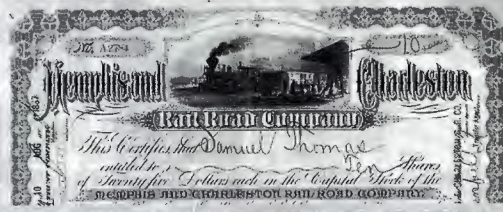 No. A2794
10
Memphis and Charleston
Rail Road Company
This Certifies that Samuel Thomas
entitled to Ten Shares
of Twenty five Dollars each in the Capital Stock of the
MEMPHIS AND CHARLESTON RAIL ROAD COMPANY.